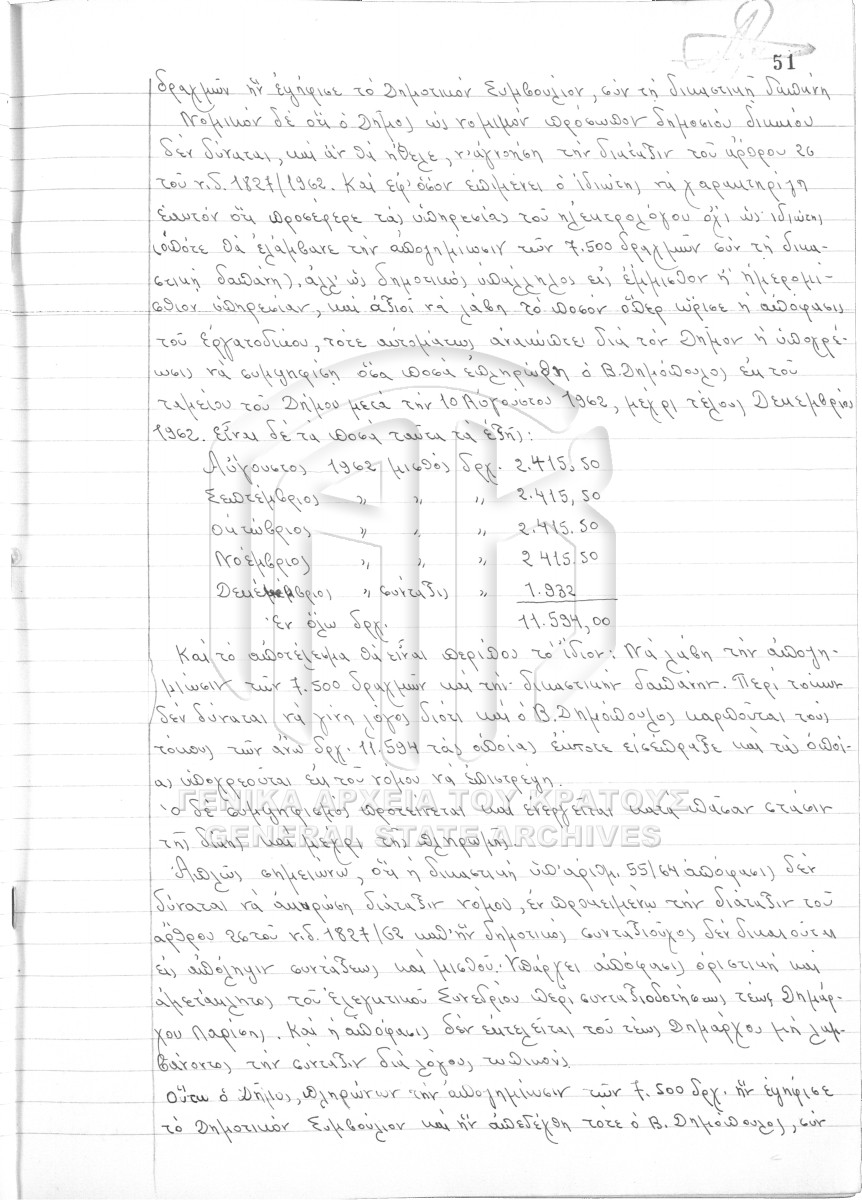 51
δραχμῶν ἣν ἐψήφισε τὸ Δημοτικὸν Συμβούλιον, σὺν τῇ δικαστικῇ δαπάνῃ
Νομικὸν δὲ ὅτι ὁ Δῆμος ὡς νομικὸν πρόσωπον δημοσίου δικαίου
δὲν δύναται, καὶ ἂν θὰ ἤθελε, ν' ἀγνοήσῃ τὴν διάταξιν τοῦ ἄρθρου 26
τοῦ ν.δ. 1827/1962. Καὶ ἐφ' ὅσον ἐπιμένει ὁ ἰδιώτης νὰ χαρακτηρίζῃ
ἑαυτὸν ὅτι προσέφερε τὰς ὑπηρεσίας τοῦ ἠλεκτρολόγου ὄχι ὡς ἰδιώτης
(ὁπότε θὰ ἐλάμβανε τὴν ἀποζημίωσιν τῶν 7.500 δραχμῶν σὺν τῇ δικα-
στικῇ δαπάνῃ), ἀλλ' ὡς δημοτικὸς ὑπάλληλος εἰς ἔμμισθον ἢ ἡμερομί-
σθιον ὑπηρεσίαν, καὶ ἀξιοῖ νὰ λάβῃ τὸ ποσὸν ὅπερ ὥρισε ἡ ἀπόφασις
τοῦ ἐργατοδικείου, τότε αὐτομάτως ἀνακύπτει διὰ τὸν Δῆμον ἡ ὑποχρέ-
ωσις νὰ συμψηφίσῃ ὅσα ποσὰ ἐπληρώθη ὁ Β. Δημόπουλος ἐκ τοῦ
ταμείου τοῦ Δήμου μετὰ τὴν 10 Αὐγούστου 1962, μέχρι τέλους Δεκεμβρίου
1962. Εἶναι δὲ τὰ ποσὰ ταῦτα τὰ ἑξῆς:
Αὔγουστος 1962 μισθὸς δρχ. 2.415,50
Σεπτέμβριος " " " 2.415,50
Ὀκτώβριος " " " 2.415.50
Νοέμβριος " " " 2415.50
Δεκέμβριος " σύνταξις " 1.932
Ἐν ὅλῳ δρχ. 11.594,00
Καὶ τὸ ἀποτέλεσμα θὰ εἶναι περίπου τὸ ἴδιον: Νὰ λάβῃ τὴν ἀποζη-
μίωσιν τῶν 7.500 δραχμῶν καὶ τὴν δικαστικὴν δαπάνην. Περὶ τόκων
δὲν δύναται νὰ γίνῃ λόγος διότι καὶ ὁ Β. Δημόπουλος καρποῦται τοὺς
τόκους τῶν ἄνω δρχ. 11.594 τὰς ὁποίας ἔκτοτε εἰσέπραξε καὶ τὰς ὁποί-
ας ὑποχρεοῦται ἐκ τοῦ νόμου νὰ ἐπιστρέψῃ.
Ὁ δὲ συμψηφισμὸς προτείνεται καὶ ἐνεργεῖται κατὰ πᾶσαν στάσιν
τῆς δίκης καὶ μέχρι τῆς πληρωμῆς.
ΓΕΝΙΚΑ ΑΡΧΕΙΑ ΤΟΥ ΚΡΑΤΟΥΣ
GENERAL STATE ARCHIVES
Ἁπλῶς σημειώνω, ὅτι ἡ δικαστικὴ ὑπ' ἀριθμ. 55/64 ἀπόφασις δὲν
δύναται νὰ ἀκυρώσῃ διάταξιν νόμου, ἐν προκειμένῳ τὴν διάταξιν τοῦ
ἄρθρου 26 τοῦ ν.δ. 1827/62 καθ' ἣν δημοτικὸς συνταξιοῦχος δὲν δικαιοῦται
εἰς ἀπόληψιν συντάξεως καὶ μισθοῦ. Ὑπάρχει ἀπόφασις ὁριστικὴ καὶ
ἀμετάκλητος τοῦ Ἐλεγκτικοῦ Συνεδρίου περὶ συνταξιοδοτήσεως τέως Δημάρ-
χου Λαρίσης. Καὶ ἡ ἀπόφασις δὲν ἐκτελεῖται τοῦ τέως Δημάρχου μὴ λαμ-
βάνοντος τὴν σύνταξιν διὰ λόγους τυπικούς.
Οὕτω ὁ Δῆμος, πληρώνων τὴν ἀποζημίωσιν τῶν 7.500 δρχ. ἣν ἐψήφισε
τὸ Δημοτικὸν Συμβούλιον καὶ ἣν ἀπεδέχθη τότε ὁ Β. Δημόπουλος, σὺν